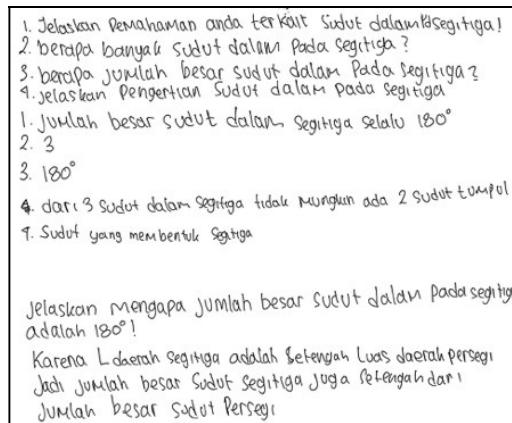 1. Jelaskan Pemahaman anda terkait Sudut dalam segitiga!
2. berapa banyak sudut dalam Pada segitiga?
3. berapa jumlah besar sudut dalam Pada segitiga?
4. jelaskan Pengertian Sudut dalam pada segitiga
1. Jumlah besar sudut dalam segitiga selalu 180°
2. 3
3. 180°
4. dari 3 sudut dalam segitiga tidak mungkin ada 2 sudut tumpul
4. Sudut yang membentuk segitiga
Jelaskan mengapa jumlah besar sudut dalam pada segitig
adalah 180°!
Karena L daerah segitiga adalah setengah Luas daerah persegi
Jadi jumlah besar sudut segitiga juga setengah dari
Jumlah besar sudut Persegi